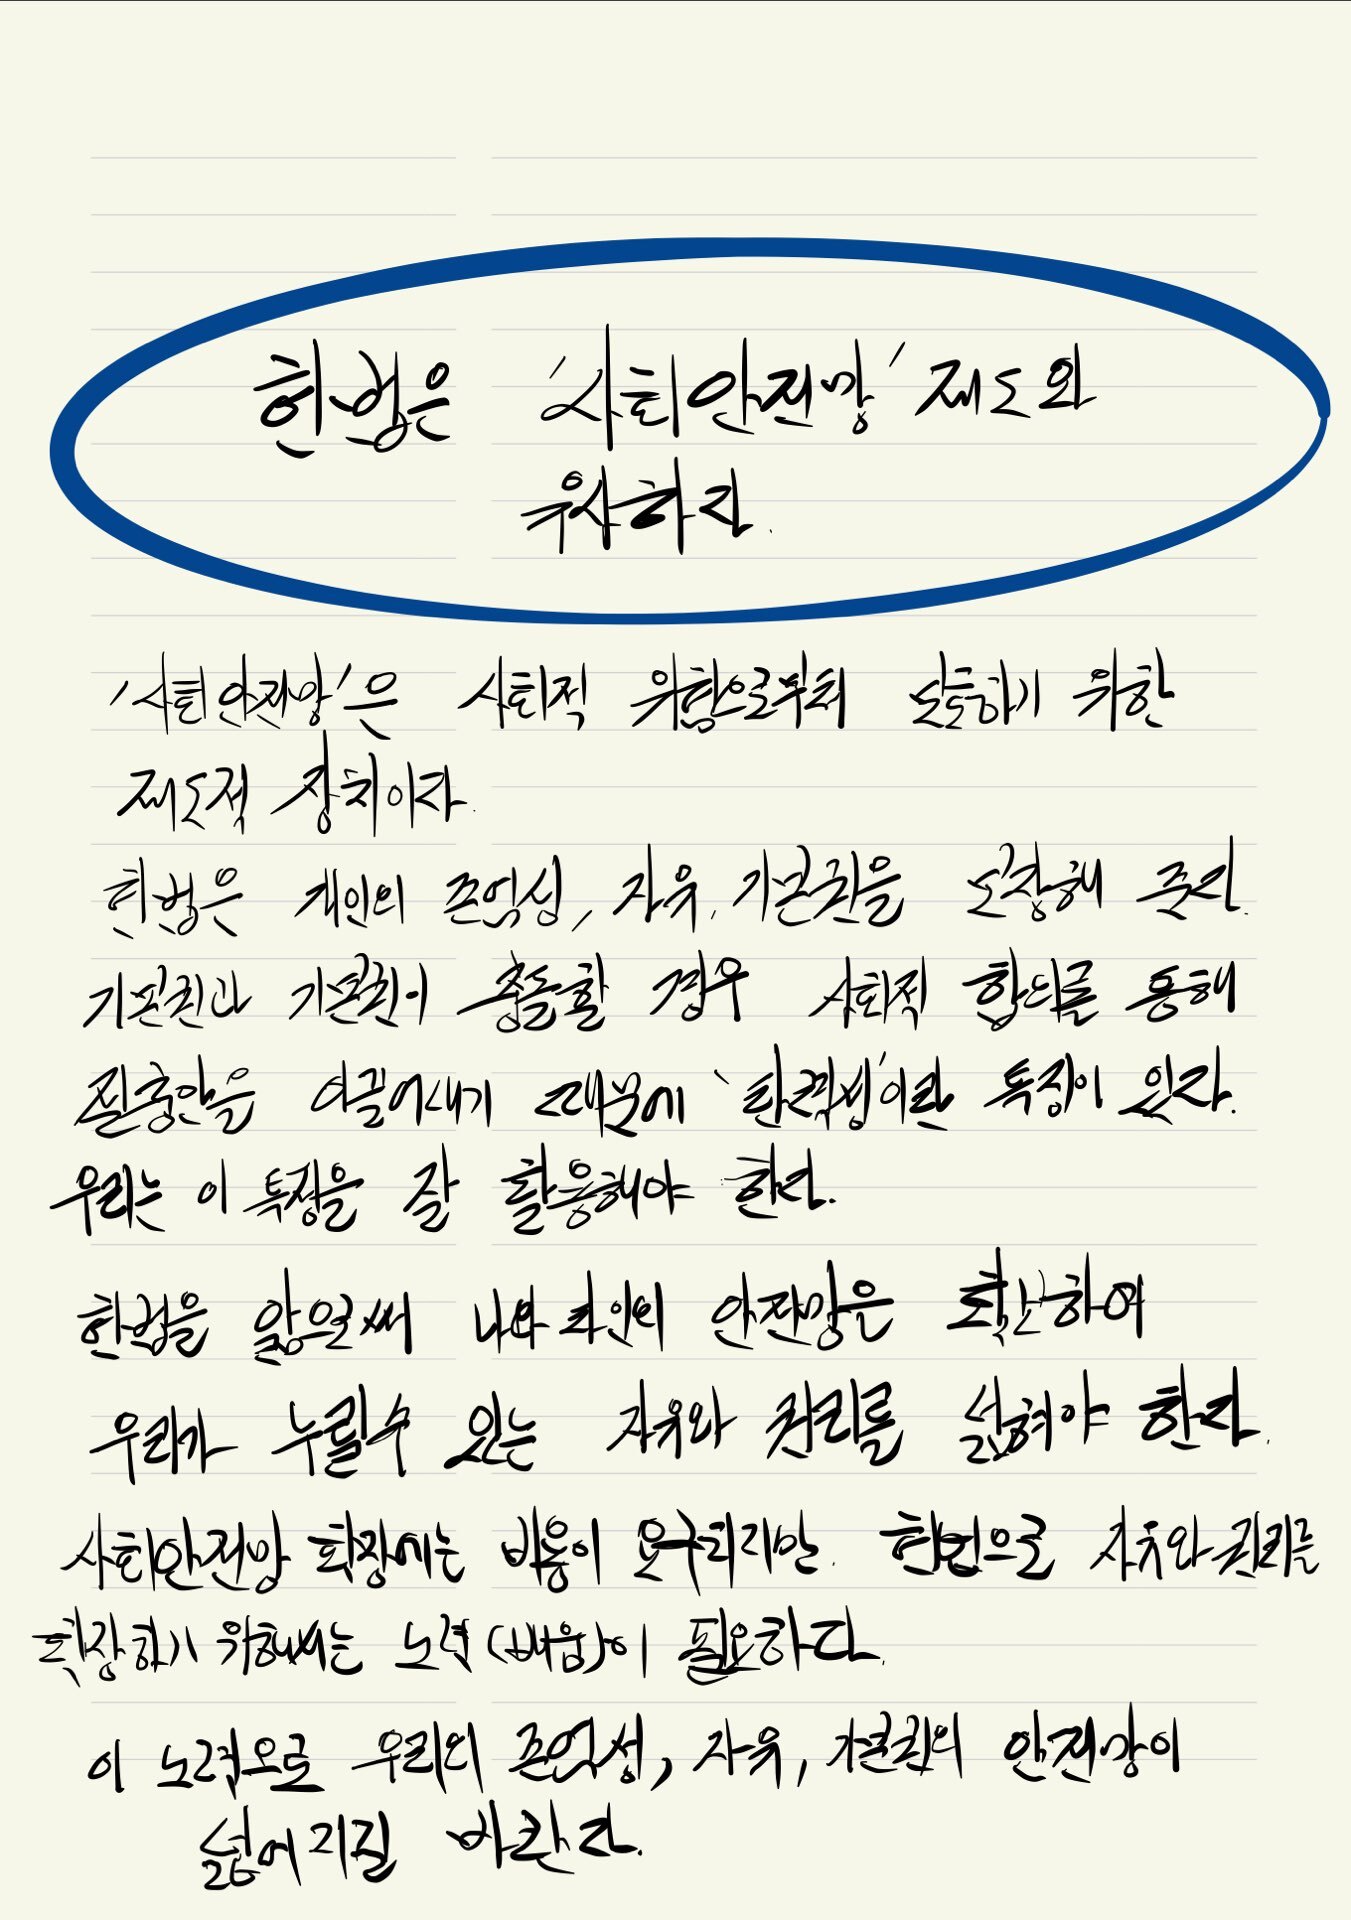 헌법은 '사회안전망' 제도와
유사하다.
'사회안전망'은 사회적 위험으로부터 보호하기 위한
제도적 장치이다.
헌법은 개인의 존엄성, 자유, 기본권을 보장해 준다.
기본권과 기본권이 충돌할 경우 사회적 합의를 통해
절충안을 이끌어내기 때문에 '탄력성'이란 특징이 있다.
우리는 이 특징을 잘 활용해야 한다.
헌법을 앎으로써 나와 타인의 안전망은 확산하여
우리가 누릴수 있는 자유와 권리를 넓혀야 한다.
사회안전망 확장에는 비용이 요구되지만. 헌법으로 자유와 권리를
확장하기 위해서는 노력(배움)이 필요하다.
이 노력으로 우리의 존엄성, 자유, 기본권의 안전망이
넓어지길 바란다.